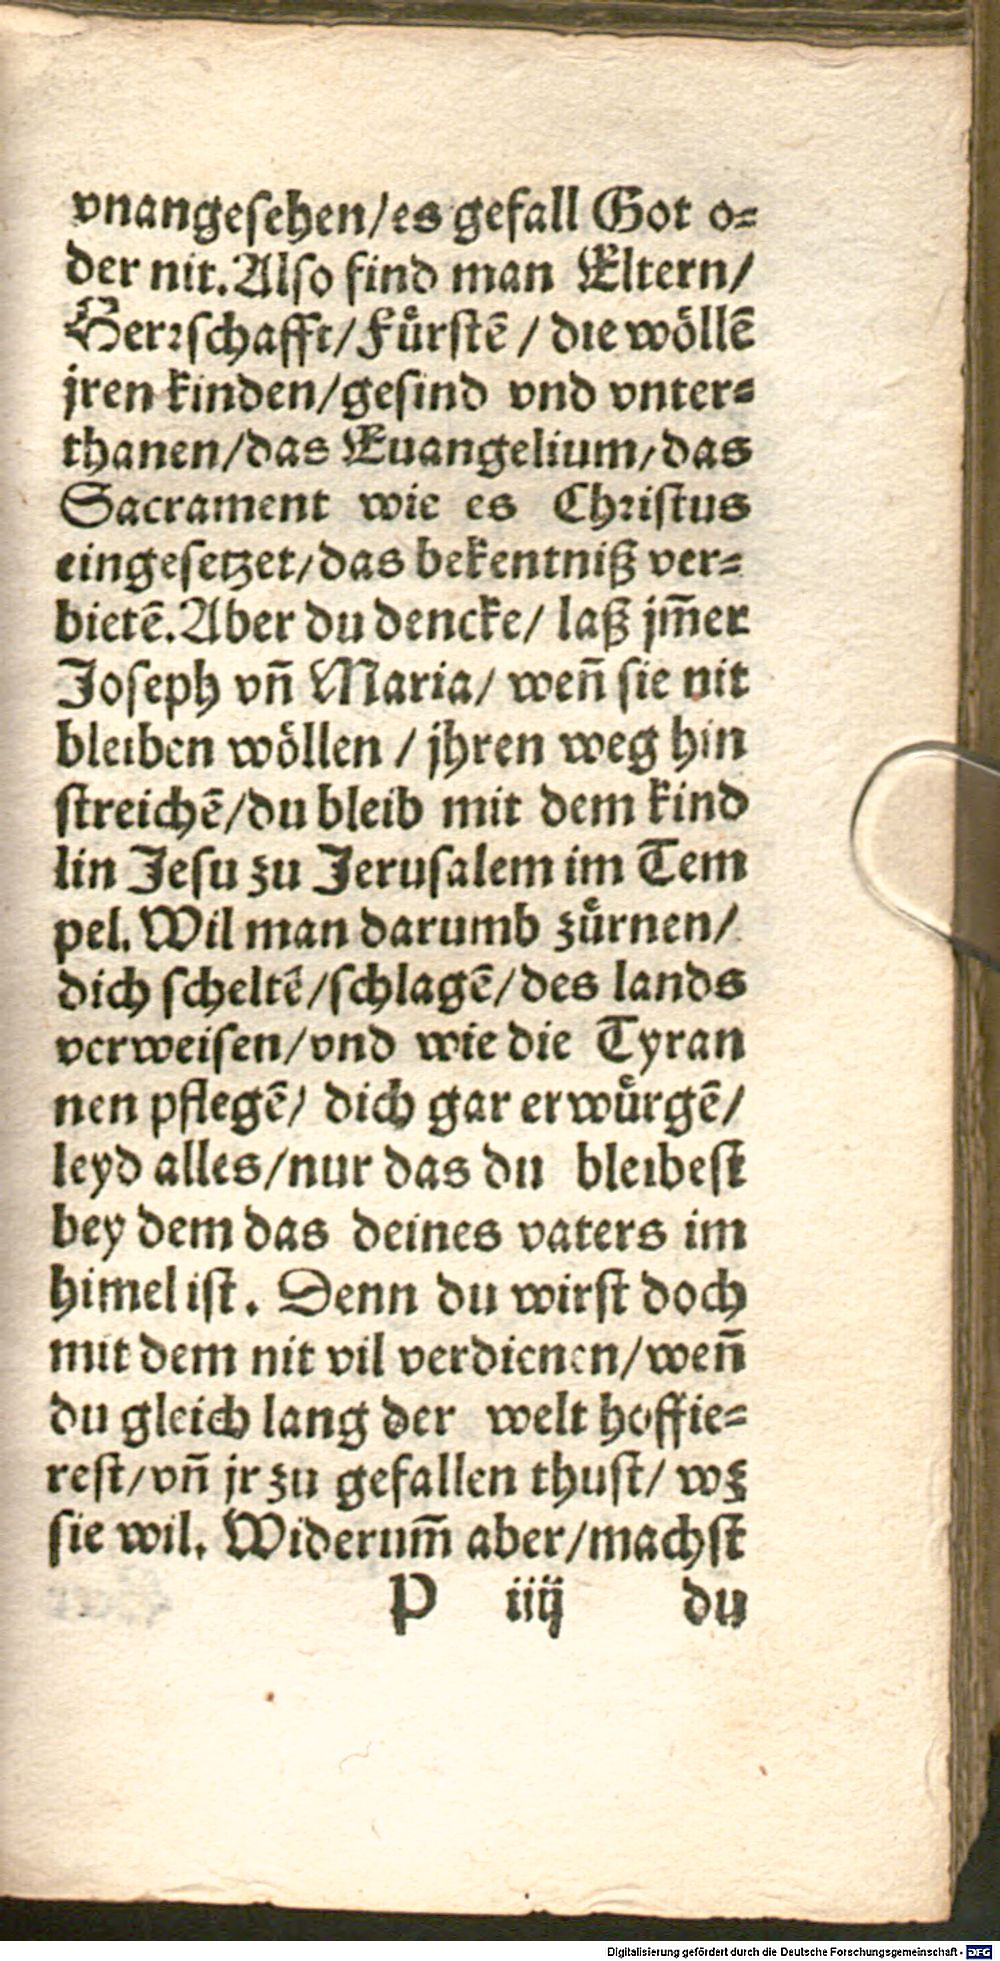 vnangesehen/es gefall Got o⸗
der nit. Also find man Eltern/
Herꝛschafft/Fuͤrstẽ / die woͤllẽ
jren kinden/gesind vnd vnter⸗
thanen/das Euangelium/das
Sacrament wie es Chꝛistus
eingesetzet/das bekentniß ver⸗
bietẽ. Aber du dencke/ laß jm̃er
Joseph vñ Maria/ weñ sie nit
bleiben woͤllen / jhren weg hin
streichẽ/du bleib mit dem kind
lin Jesu zu Jerusalem im Tem
pel. Wil man darumb zuͤrnen/
dich scheltẽ/schlagẽ/des lands
verweisen/vnd wie die Tyran
nen pflegẽ/ dich gar erwuͤrgẽ/
leyd alles/nur das du bleibest
bey dem das deines vaters im
himel ist. Denn du wirst doch
mit dem nit vil verdienen/weñ
du gleich lang der welt hoffie⸗
rest/vñ jr zu gefallen thust/ wz
sie wil. Widerum̃ aber/machst
P iiij du
Digitalisierung gefördert durch die Deutsche Forschungsgemeinschaft - DFG